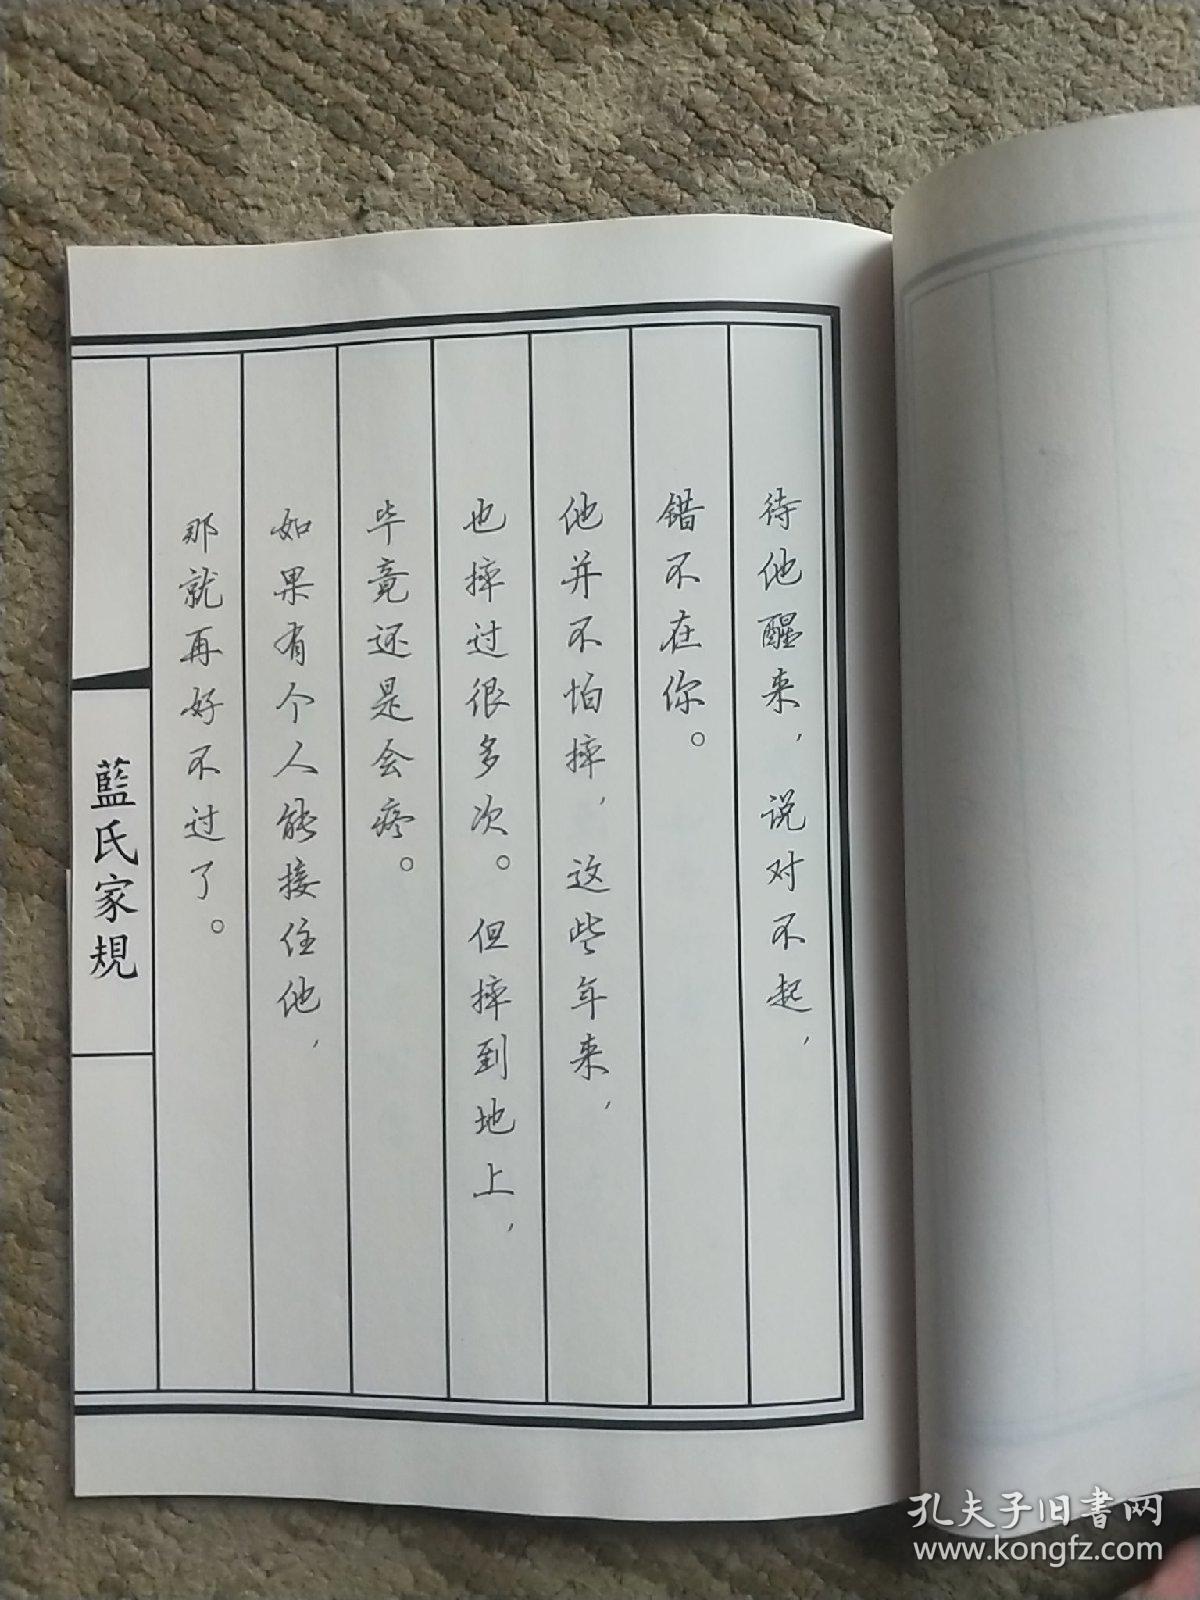 待他醒来，说对不起，
错不在你。
他并不怕摔，这些年来，
也摔过很多次。但摔到地上，
毕竟还是会疼。
如果有个人能接住他，
那就再好不过了。
藍氏家規
孔夫子旧書网
www.kongfz.com